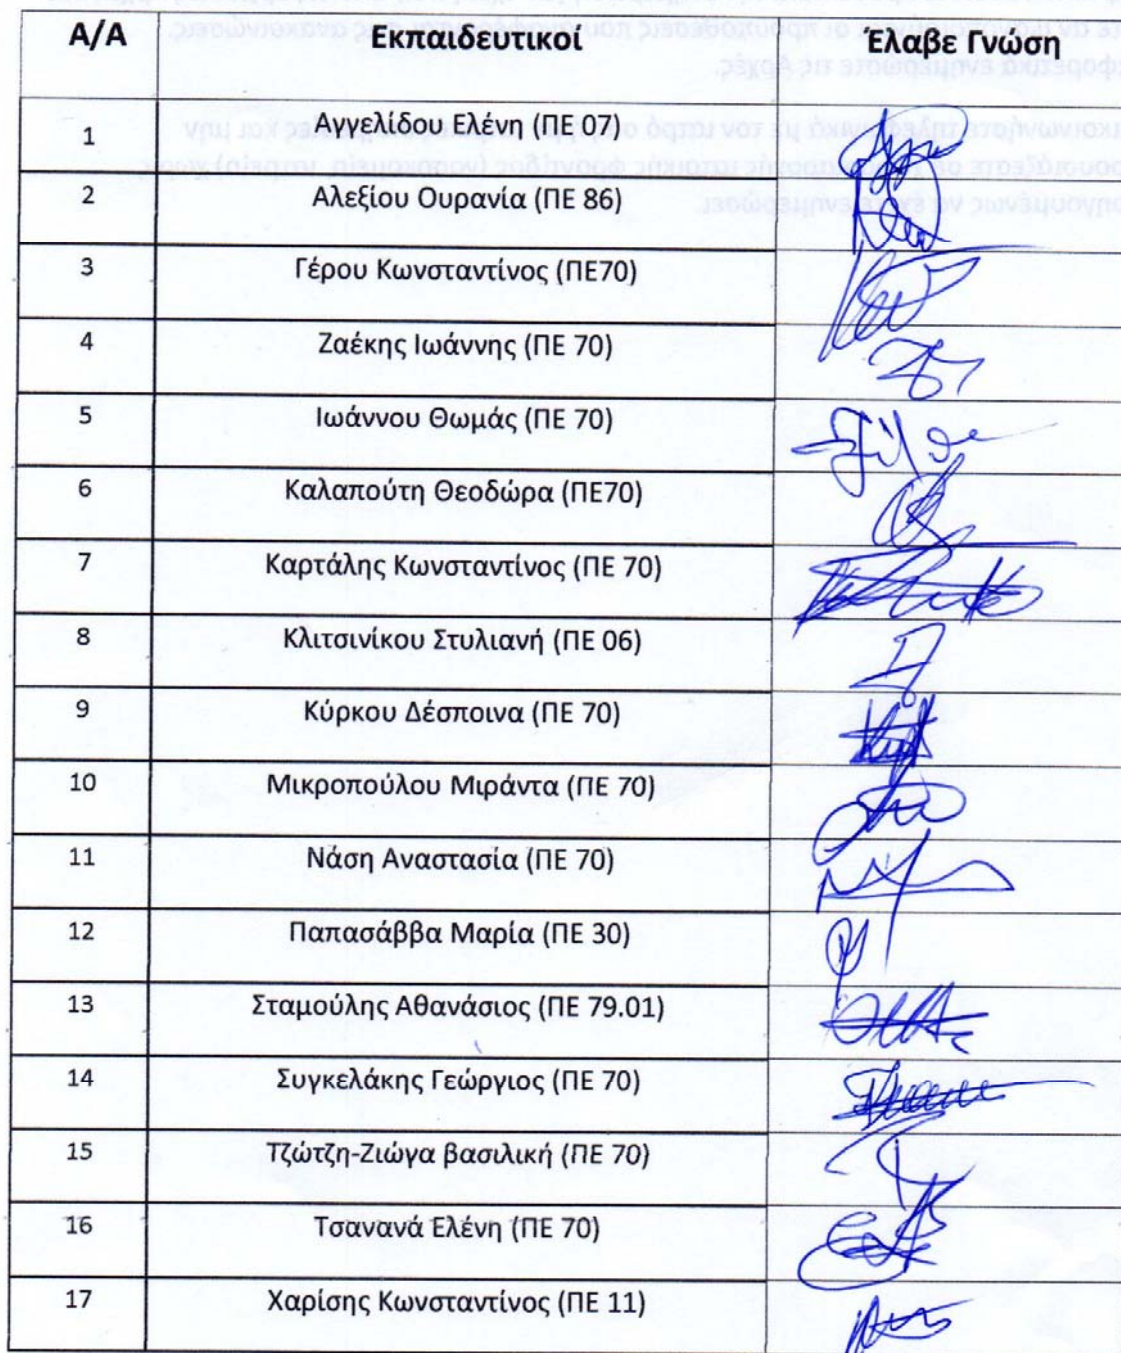 Α/Α Εκπαιδευτικοί Έλαβε Γνώση
1 Αγγελίδου Ελένη (ΠΕ 07)
2 Αλεξίου Ουρανία (ΠΕ 86)
3 Γέρου Κωνσταντίνος (ΠΕ70)
4 Ζαέκης Ιωάννης (ΠΕ 70)
5 Ιωάννου Θωμάς (ΠΕ 70)
6 Καλαπούτη Θεοδώρα (ΠΕ70)
7 Καρτάλης Κωνσταντίνος (ΠΕ 70)
8 Κλιτσινίκου Στυλιανή (ΠΕ 06)
9 Κύρκου Δέσποινα (ΠΕ 70)
10 Μικροπούλου Μιράντα (ΠΕ 70)
11 Νάση Αναστασία (ΠΕ 70)
12 Παπασάββα Μαρία (ΠΕ 30)
13 Σταμούλης Αθανάσιος (ΠΕ 79.01)
14 Συγκελάκης Γεώργιος (ΠΕ 70)
15 Τζώτζη-Ζιώγα βασιλική (ΠΕ 70)
16 Τσανανά Ελένη (ΠΕ 70)
17 Χαρίσης Κωνσταντίνος (ΠΕ 11)